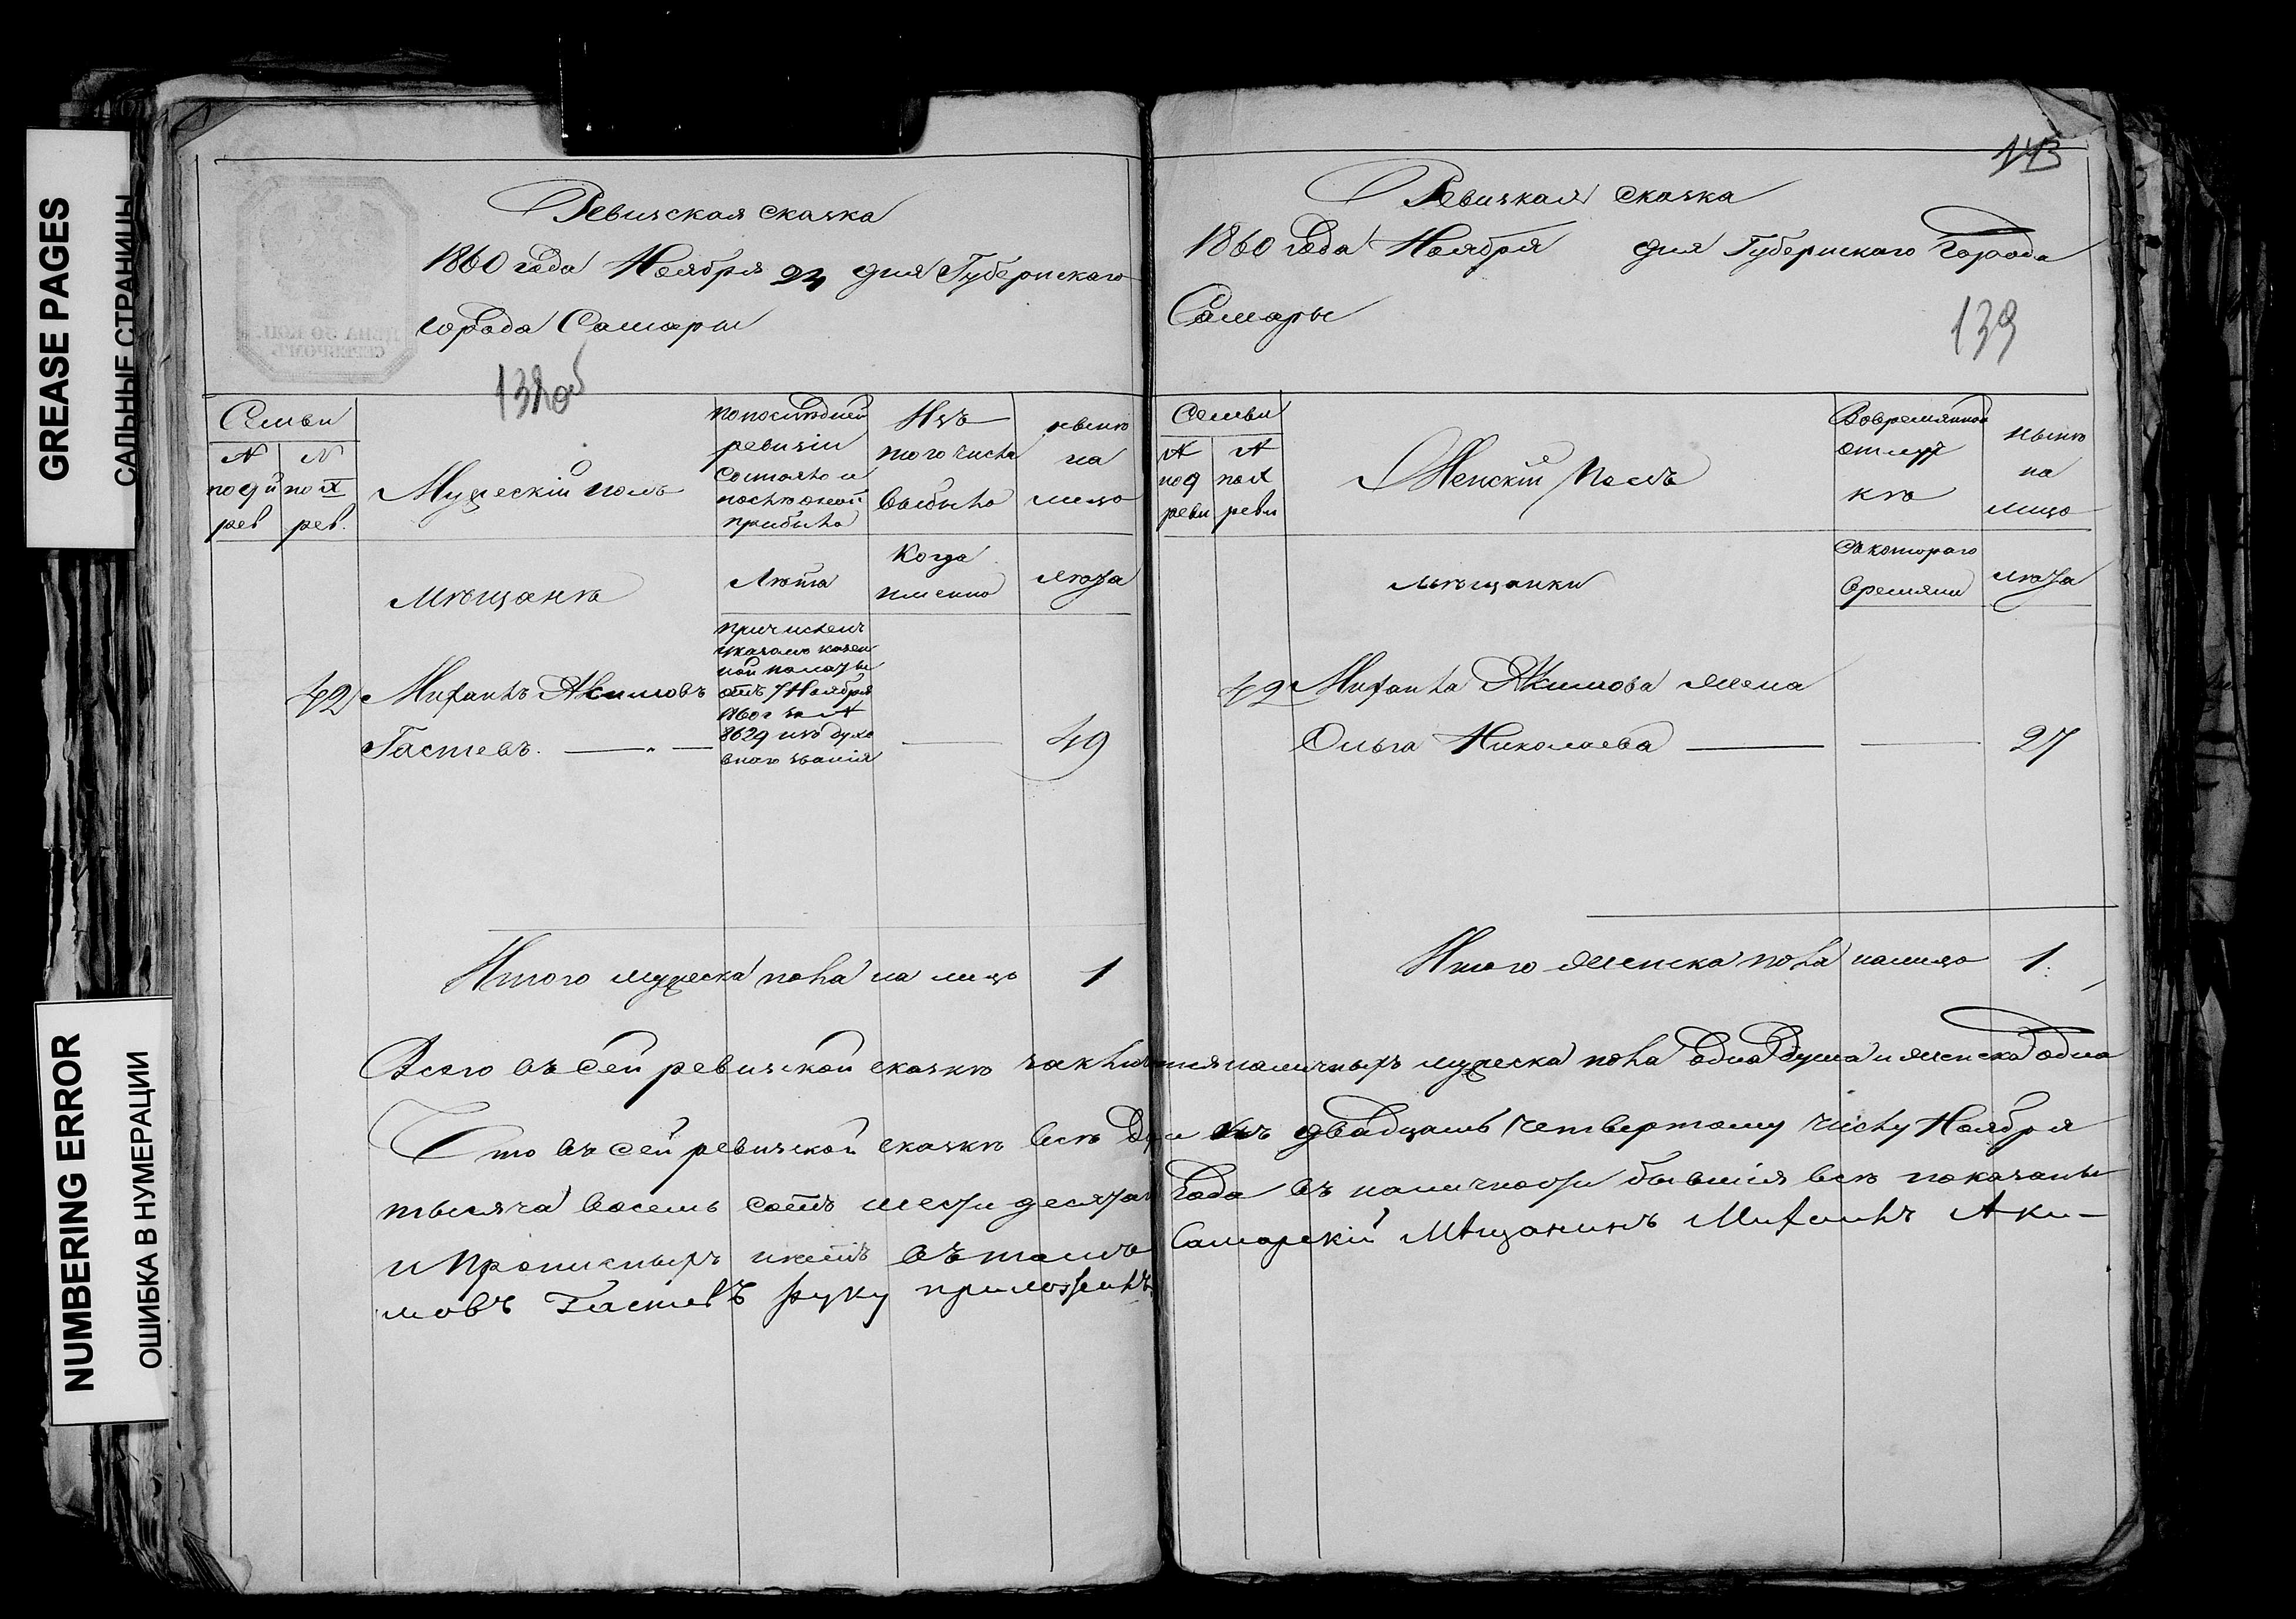 GREASE PAGES
САЛЬНЫЕ СТРАНИЦЫ
NUMBERING ERROR
ОШИБКА В НУМЕРАЦИИ
Ревизская сказка
1860 года Ноября 24 дня Губернскаго
города Самары
ЦѢНА 30 КОП.
СЕРЕБРОМЪ
138об
Семьи
N N
по 9й по X
рев рев.
Мужескій полъ
по последней
ревизіи
состояло и
после оной
прибыло
Изъ
того числа
выбыло
ныне
на
лицо
мѣщанѣ
Лѣта
Когда
именно
лѣта
42
Михаилъ Акимовъ
Гастевъ.
причисленъ
указомъ казен
ной палаты
отъ 7 Ноября
1860 г за N
8629 изъ духо
внаго званія
49
Итого мужеска пола на лицо 1
143
Ревизкая сказка
1860 года Ноября дня Губернскаго Города
Самары
139
Семьи
N N
по 9 по X
реви реви
Женскій полъ
Во временной
отлуч
кѣ
нынѣ
на
лицо
мѣщанки
Съ котораго
времяни
лѣта
42 Михаила Акимова жена
Ольга Николаева 27
Итого женска пола налицо 1.
Всего въ сей ревизской сказкѣ заключается наличныхъ мужеска пола одна душа и женска одна
Что въ сей ревизской сказкѣ всѣ души къ двадцать четвертому числу Ноября
тысяча восемь сотъ шестидесятаго Года въ наличности бывшія всѣ показаны
и прописныхъ нетъ въ томъ Самарскій Мѣщанинъ Михаилъ Аки-
мовъ Гастевъ руку приложилъ